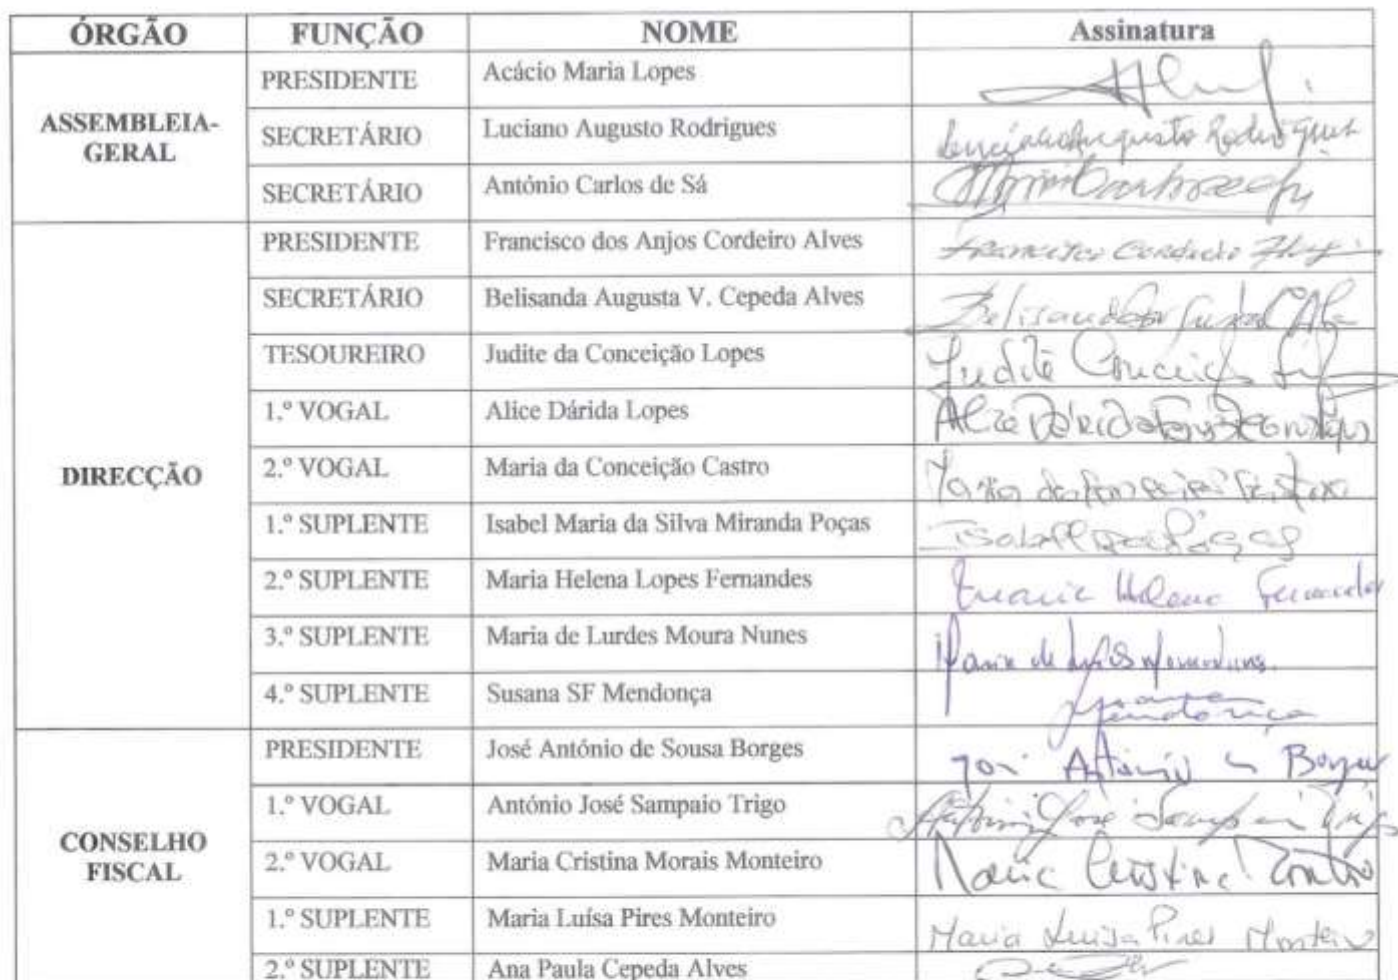 ÓRGÃO FUNÇÃO NOME Assinatura
ASSEMBLEIA-
GERAL
PRESIDENTE Acácio Maria Lopes
SECRETÁRIO Luciano Augusto Rodrigues Luciano Augusto Rodrigues
SECRETÁRIO António Carlos de Sá
DIRECÇÃO
PRESIDENTE Francisco dos Anjos Cordeiro Alves Francisco Cordeiro Alves
SECRETÁRIO Belisanda Augusta V. Cepeda Alves Belisanda
TESOUREIRO Judite da Conceição Lopes Judite Conceição
1.º VOGAL Alice Dárida Lopes Alice Dárida
2.º VOGAL Maria da Conceição Castro Maria da
1.º SUPLENTE Isabel Maria da Silva Miranda Poças Isabel Poças
2.º SUPLENTE Maria Helena Lopes Fernandes Maria Helena Fernandes
3.º SUPLENTE Maria de Lurdes Moura Nunes Maria de Lurdes Moura Nunes
4.º SUPLENTE Susana SF Mendonça Susana Mendonça
CONSELHO
FISCAL
PRESIDENTE José António de Sousa Borges José António Borges
1.º VOGAL António José Sampaio Trigo António José Sampaio Trigo
2.º VOGAL Maria Cristina Morais Monteiro Maria Cristina Monteiro
1.º SUPLENTE Maria Luísa Pires Monteiro Maria Luisa Pires Monteiro
2.º SUPLENTE Ana Paula Cepeda Alves